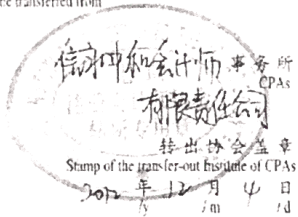 be transferred from
信永中和会计师 事务所
CPAs
有限责任公司
转出协会盖章
Stamp of the transfer-out Institute of CPAs
2012 年 12 月 4 日
/y /m /d